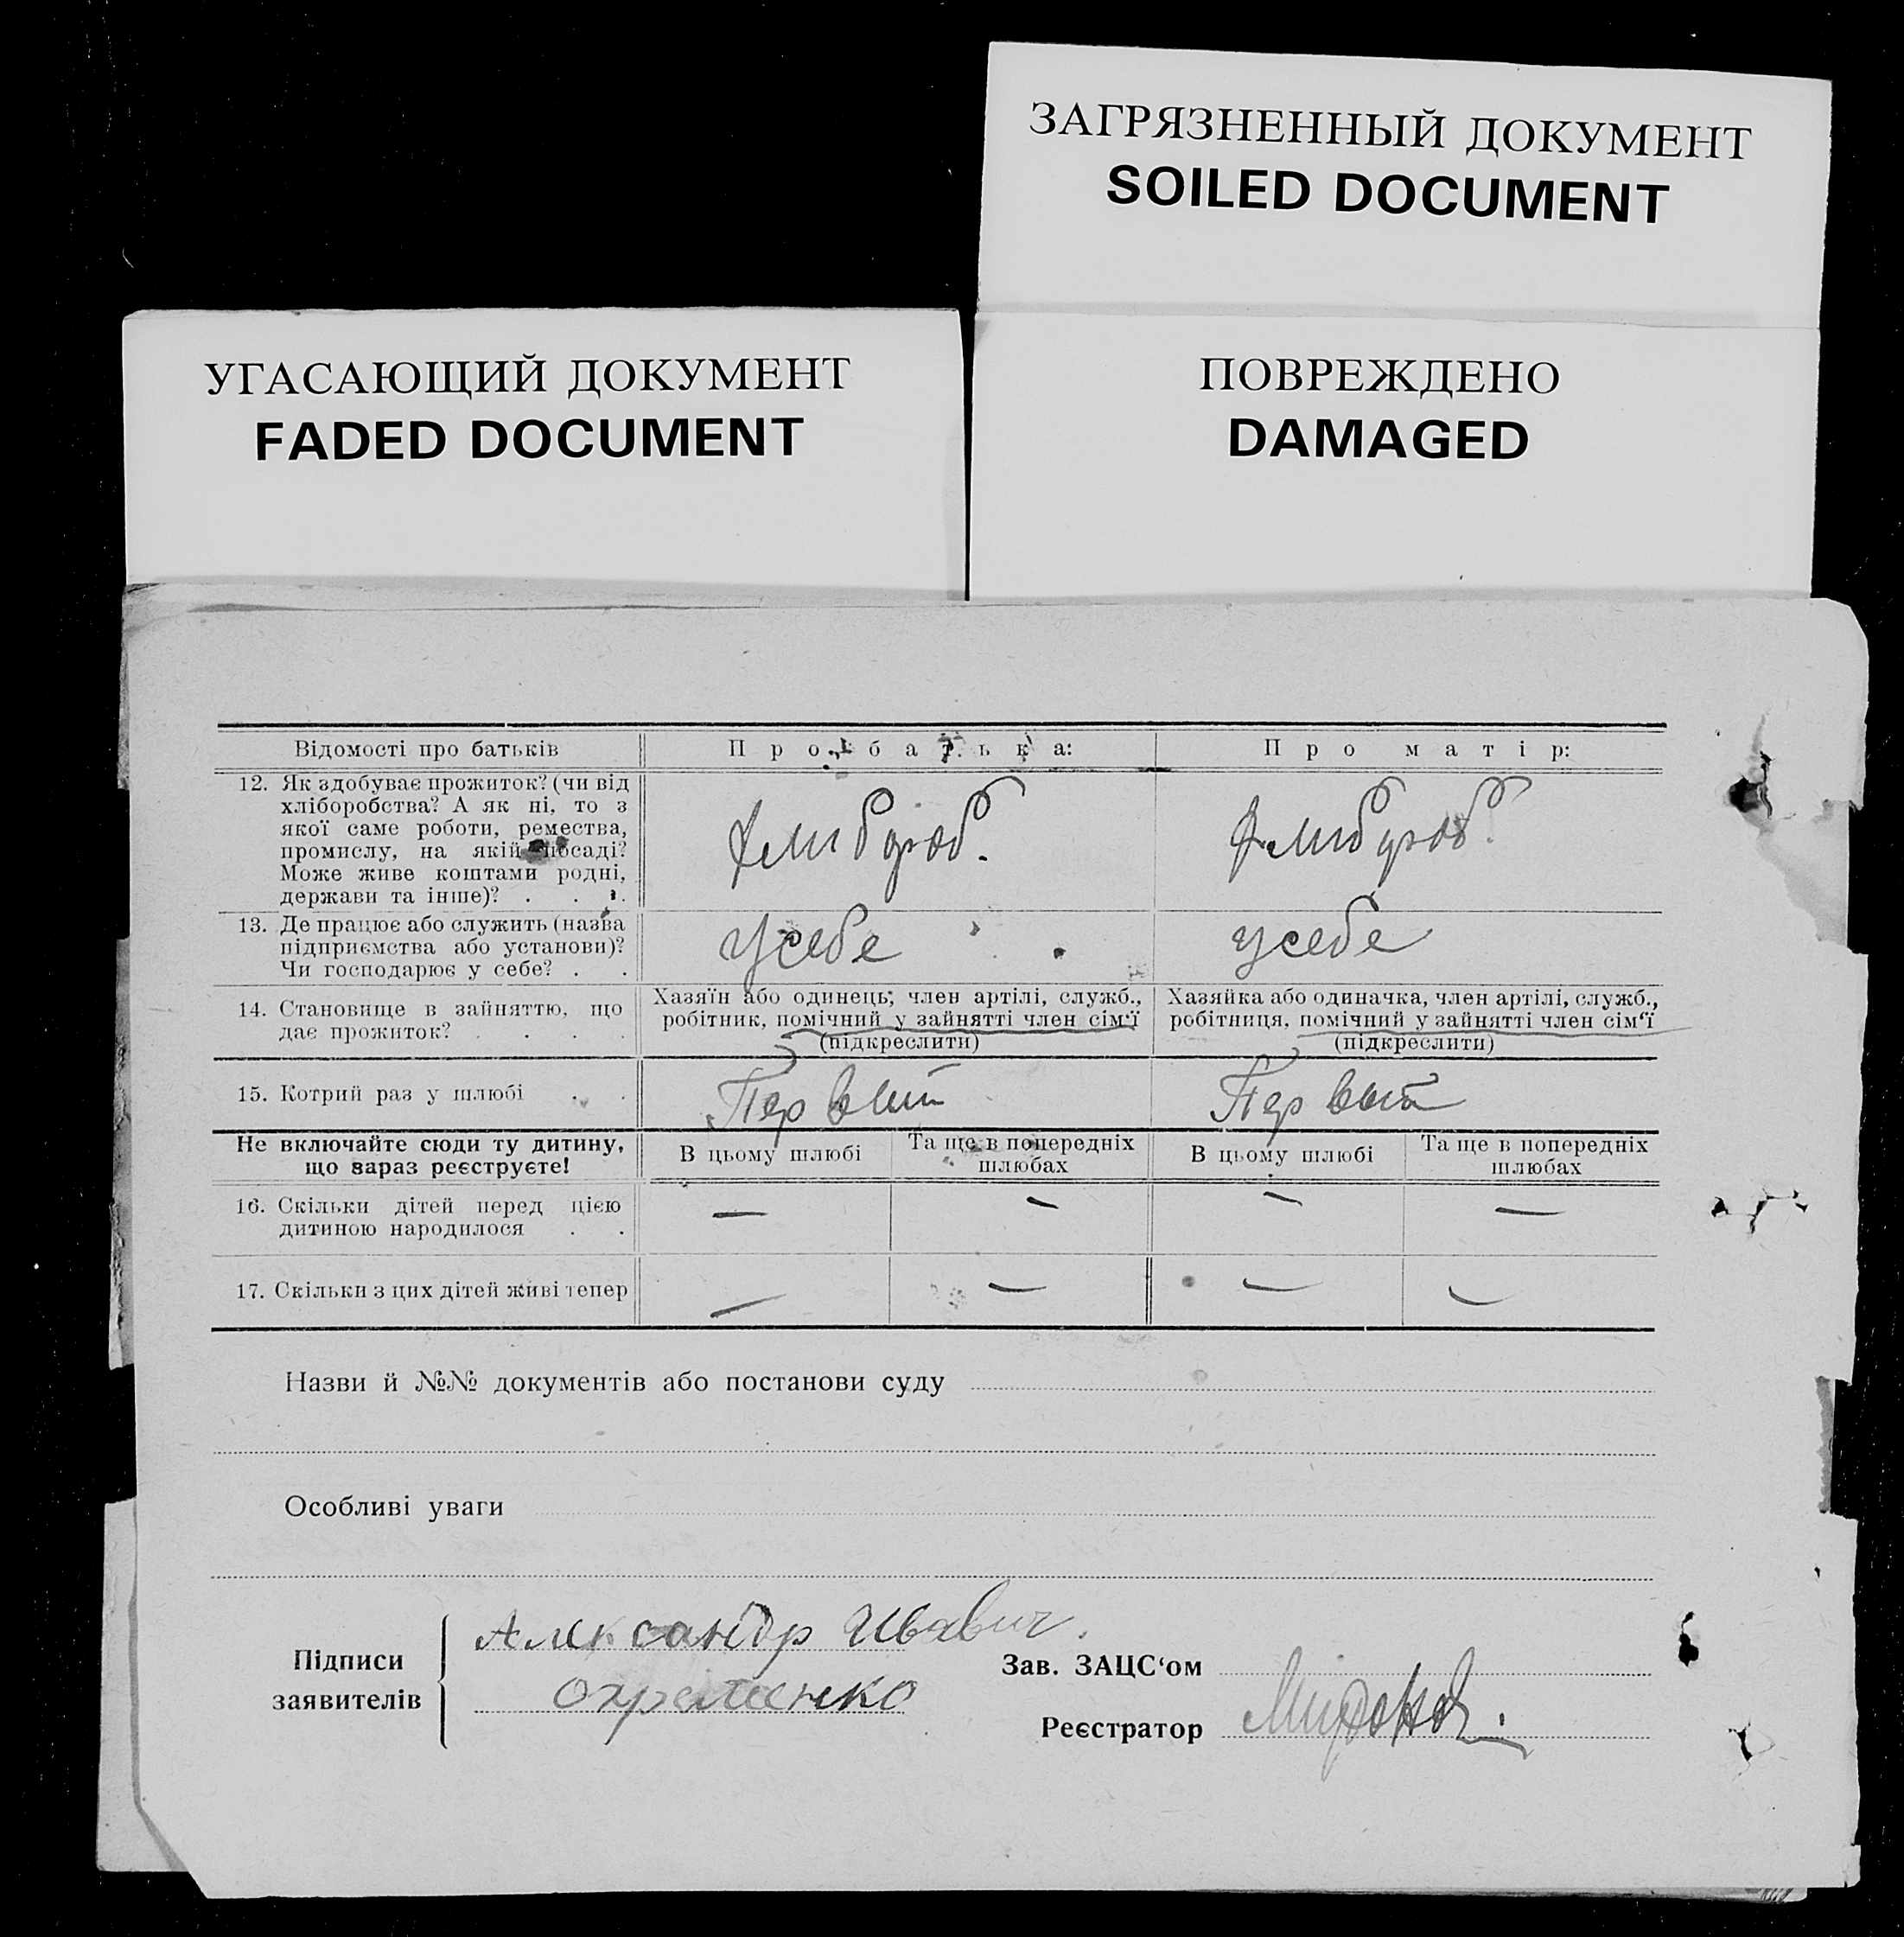 ЗАГРЯЗНЕННЫЙ ДОКУМЕНТ
SOILED DOCUMENT
УГАСАЮЩИЙ ДОКУМЕНТ
FADED DOCUMENT
ПОВРЕЖДЕНО
DAMAGED
Відомості про батьків
Про батька:
Про матір:
12. Як здобуває прожиток? (чи від
хліборобства? А як ні, то з
якої саме роботи, ремества,
промислу, на якій посаді?
Може живе коштами родні,
держави та інше)? . . .
13. Де працює або служить (назва
підприємства або установи)?
Чи господарює у себе? . .
усебе
усебе
14. Становище в зайняттю, що
дає прожиток? . . . .
Хазяїн або одинець; член артілі, служб.,
робітник, помічний у зайнятті член сім'ї
(підкреслити)
Хазяйка або одиначка, член артілі, служб.,
робітниця, помічний у зайнятті член сім'ї
(підкреслити)
15. Котрий раз у шлюбі . .
Первый
Первый
Не включайте сюди ту дитину,
що зараз реєструєте!
В цьому шлюбі
Та ще в попередніх
шлюбах
В цьому шлюбі
Та ще в попередніх
шлюбах
16. Скільки дітей перед цією
дитиною народилося . .
— — — —
17. Скільки з цих дітей живі тепер
— — — —
Назви й №№ документів або постанови суду
Особливі уваги
Підписи
заявителів
Александр
Охременко
Зав. ЗАЦС‘ом
Реєстратор